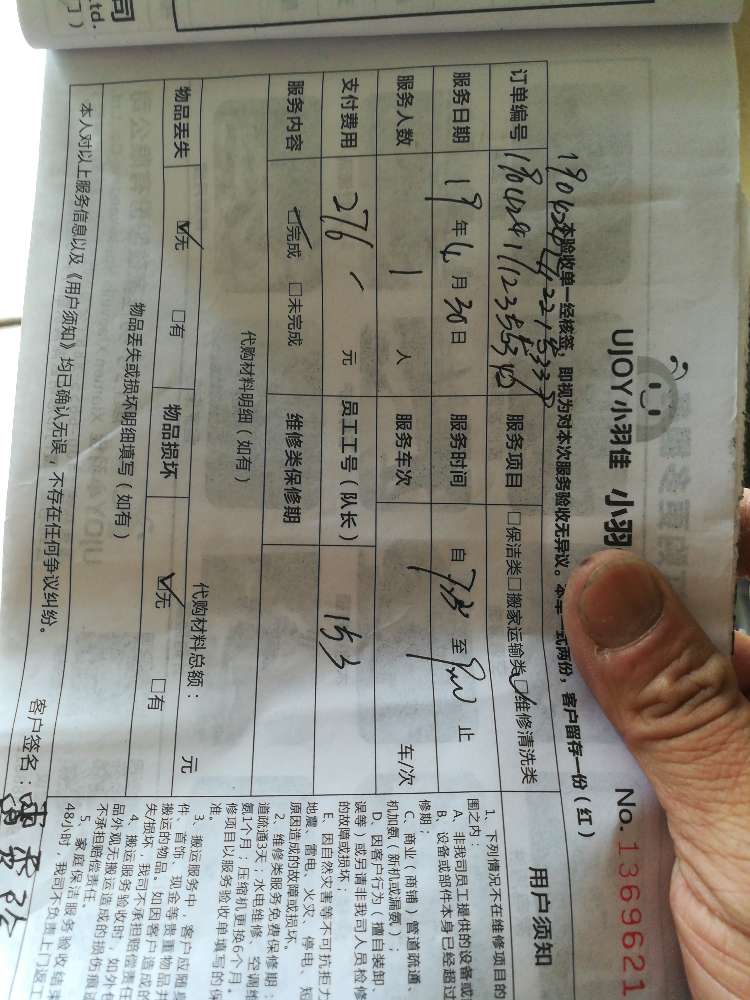 司
td.
UJOY小羽佳 小羽
No. 1369621
本验收单一经核签，即视为对本次服务验收无异议。本单一式两份，客户留存一份（红）
订单编号
服务项目 □保洁类□搬家运输类☑维修清洗类
服务日期 19年4月30日 服务时间 自 至 止
服务人数 1 人 服务车次 车/次
支付费用 276 元 员工工号（队长） 153
服务内容 ☑完成 □未完成 维修类保修期
代购材料明细（如有） 代购材料总额： 元
物品丢失 ☑无 □有 物品损坏 ☑无 □有
物品丢失或损坏明细填写（如有）
本人对以上服务信息以及《用户须知》均已确认无误，不存在任何争议纠纷。
客户签名：
用户须知
1、下列情况不在维修项目的
围之内：
A、非我司员工提供的设备或
B、设备或部件本身已经超过
修期；
C、商业（商铺）管道疏通、
机加氨（新机或漏氨）；
D、因客户行为（擅自装卸、
误等）或另请非我司人员检修
的故障或损坏；
E、因自然灾害等不可抗拒力
地震、雷电、火灾、停电、短
原因造成的故障或损坏。
2、维修类服务免费保修期：
道疏通3天；水电维修、空调维
氨1个月；压缩机更换6个月。
修项目以服务验收单填写的保
准。
3、搬运服务中，客户应随身
件、首饰、现金等贵重物品并
搬运的物品。如因客户造成的
失/损坏，我司不承担赔偿责任
4、搬运服务验收时，如外包
品外观无搬运造成的损伤痕迹
不承担赔偿责任。
5、家庭保洁服务验收结束
48小时，我司不负责上门返工